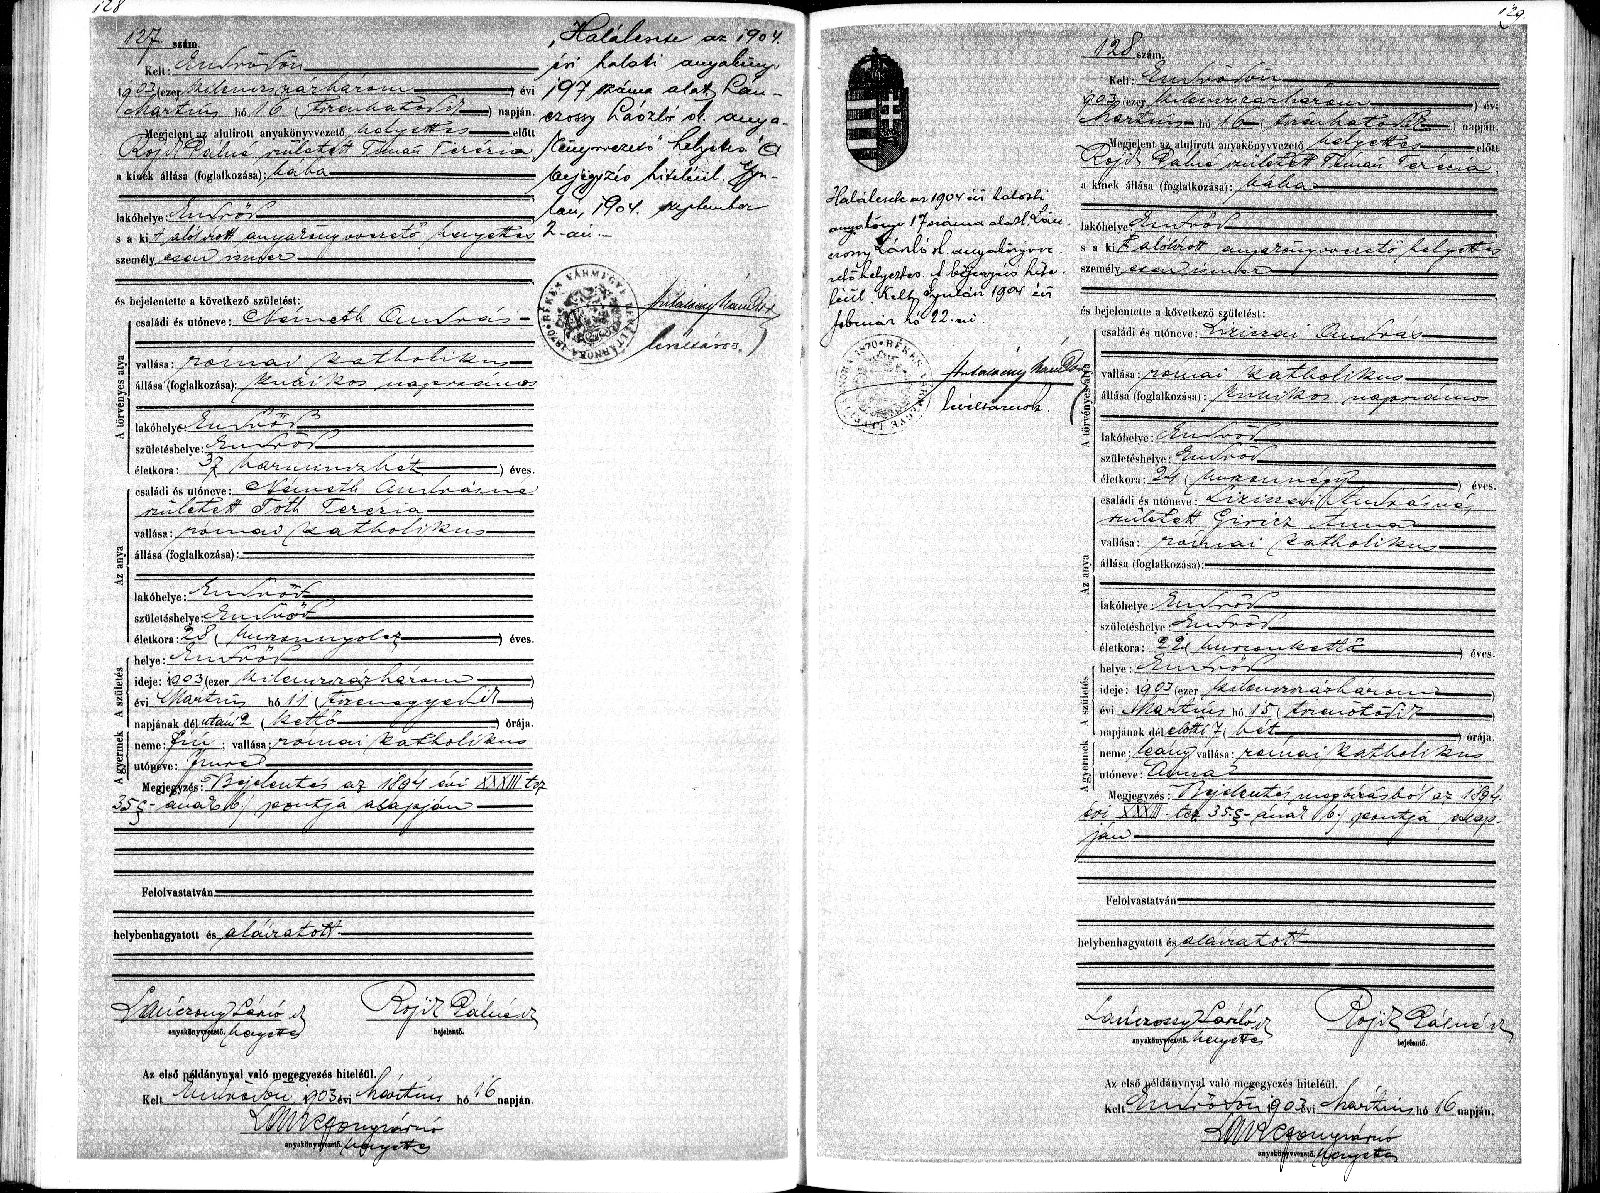 128
127 szám.
Kelt: Endrődön
1903 (ezer kilencszázhárom) évi
Martius hó 16 (tizenhatodik) napján.
Megjelent az alulirott anyakönyvvezető helyettes előtt
Rojik Pálné született Timár Terézia
a kinek állása (foglalkozása): bába
lakóhelye: Endrőd
s a kit alólirott anyakönyvvezető helyettes
személyesen ismer
és bejelentette a következő születést:
A törvényes atya
családi és utóneve: Németh András
vallása: római katholikus
állása (foglalkozása): kukás napszámos
lakóhelye: Endrőd
születéshelye: Endrőd
életkora: 37 (harminczhét) éves.
Az anya
családi és utóneve: Németh Andrásné
született Tóth Terézia
vallása: római katholikus
állása (foglalkozása):
lakóhelye: Endrőd
születéshelye: Endrőd
életkora: 28 (huszonnyolcz) éves.
A születés
helye: Endrőd
ideje: 1903 (ezer kilenczszázhárom)
évi Martius hó 11 (tizenegyedik)
napjának dél utáni 2 (kettő) órája.
A gyermek
neme: fiú; vallása: római katholikus
utóneve: Imre
Megjegyzés: Bejelentés az 1894 évi XXXIII tcz
35 §-ának b) pontja alapján
Felolvastatván
helybenhagyatott és aláíratott
Lánczossy László sk Rojik Pálné sk
anyakönyvvezető. helyettes bejelentő.
Az első példánynyal való megegyezés hiteléül.
Kelt Endrődön 1903 évi Mártius hó 16 napján.
anyakönyvvezető. helyettes
„Haláleste az 1904.
évi halotti anyakönyv
197 száma alatt, Lán-
czossy László sk. anya-
könyvvezető helyettes" A
bejegyzés hiteléül. Gyu-
lán, 1904. szeptember
2-án.
BÉKÉS VÁRMEGYE LEVÉLTÁRNOKA 1870
levéltáros.
129.
128 szám.
Kelt: Endrődön
1903 (ezer kilenczszázhárom) évi
Martius hó 16 (tizenhatodik) napján.
Megjelent az alulirott anyakönyvvezető helyettes előtt
Rojik Pálné született Timár Terézia
a kinek állása (foglalkozása): bába
lakóhelye: Endrőd
s a kit alólirott anyakönyvvezető helyettes
személyesen ismer
és bejelentette a következő születést:
A törvényes atya
családi és utóneve: András
vallása: római katholikus
állása (foglalkozása): napszámos
lakóhelye: Endrőd
születéshelye: Endrőd
életkora: 24 (huszonnégy) éves.
Az anya
családi és utóneve: Andrásné
született Giricz Anna
vallása: római katholikus
állása (foglalkozása):
lakóhelye: Endrőd
születéshelye: Endrőd
életkora: 22 (huszonkettő) éves.
A születés
helye: Endrőd
ideje: 1903 (ezer kilenczszázhárom)
évi Martius hó 15 (tizenötödik)
napjának dél előtti 7 (hét) órája.
A gyermek
neme: leány vallása: római katholikus
utóneve: Anna
Megjegyzés: Bejelentés megbízásból az 1894
évi XXXIII tcz 35 §-ának b) pontja alap-
ján
Felolvastatván
helybenhagyatott és aláíratott
Lánczossy László sk Rojik Pálné sk
anyakönyvvezető. helyettes bejelentő.
Az első példánynyal való megegyezés hiteléül.
Kelt Endrődön 1903 évi Mártius hó 16 napján.
anyakönyvvezető. helyettes
Haláleste az 1904 évi halotti
anyakönyv 17 száma alatt. Lán-
czossy László sk. anyakönyvve-
zető helyettes. A bejegyzés hite-
léül. Kelt, Gyulán 1904 évi
február hó 22-én
levéltárnok.